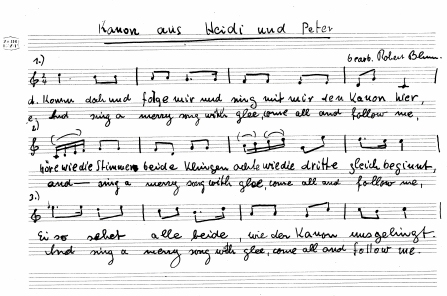 Kanon aus Heidi und Peter
1.) bearb. Robert Blum
d. Komm doch und folge mir und sing mit mir den Kanon hier,
e. And sing a merry song with glee, come all and follow me,
2)
höre wie die Stimmen beide klingen achte wie die dritte gleich beginnt,
and sing a merry song with glee, come all and follow me,
3.)
Ei so sehet alle beide, wie der Kanon uns gelingt.
And sing a merry song with glee, come all and follow me.